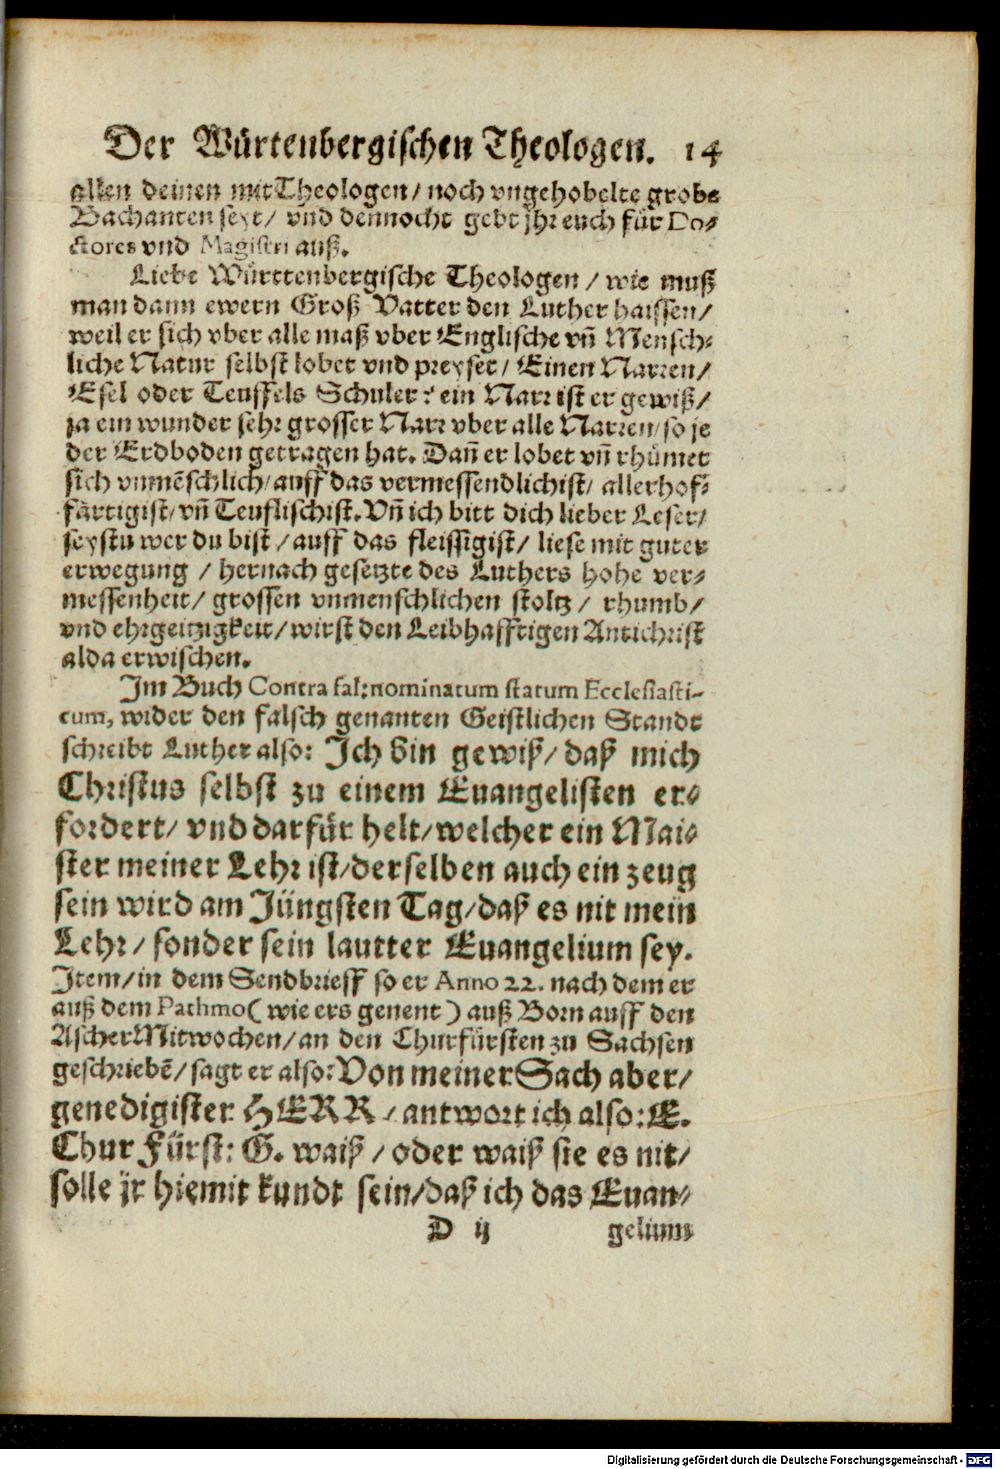 Der Würtenbergischen Theologen. 14
allen deinen mit Theologen/ noch vngehobelte grobe
Bachanten seyt/ vnd dennocht gebt jhr euch für Do-
ctores vnd Magistri auß.
Liebe Württenbergische Theologen / wie muß
man dann ewern Groß Vatter den Luther haissen/
weil er sich vber alle maß vber Englische vñ Mensch-
liche Natur selbst lobet vnd preyset/ Einen Narren/
Esel oder Teuffels Schuler? ein Narr ist er gewiß/
ja ein wunder sehr grosser Narr vber alle Narren/ so je
der Erdboden getragen hat. Dañ er lobet vñ rhümet
sich vnmẽschlich/ auff das vermessendlichist/ allerhof-
färtigist/ vñ Teuflischist. Vñ ich bitt dich lieber Leser/
seystu wer du bist / auff das fleissigist/ liese mit guter
erwegung / hernach gesetzte des Luthers hohe ver-
messenheit/ grossen vnmenschlichen stoltz / rhumb/
vnd ehrgeitzigkeit/ wirst den Leibhafftigen Antichrist
alda erwischen.
Im Buch Contra fal: nominatum statum Ecclesiasti-
cum, wider den falsch genanten Geistlichen Standt
schreibt Luther also: Ich bin gewiß/ daß mich
Christus selbst zu einem Euangelisten er-
fordert/ vnd darfür helt/ welcher ein Mai-
ster meiner Lehr ist/ derselben auch ein zeug
sein wird am Jüngsten Tag/ daß es nit mein
Lehr/ sonder sein lautter Euangelium sey.
Item/ in dem Sendbrieff so er Anno 22. nach dem er
auß dem Pathmo ( wie ers genent ) auß Born auff den
AscherMitwochen/ an den Churfürsten zu Sachsen
geschriebẽ/ sagt er also: Von meiner Sach aber/
genedigister HERR / antwort ich also: E.
Chur Fürst: G. waiß / oder waiß sie es nit/
solle jr hiemit kundt sein/ daß ich das Euan-
D ij gelium
Digitalisierung gefördert durch die Deutsche Forschungsgemeinschaft - DFG